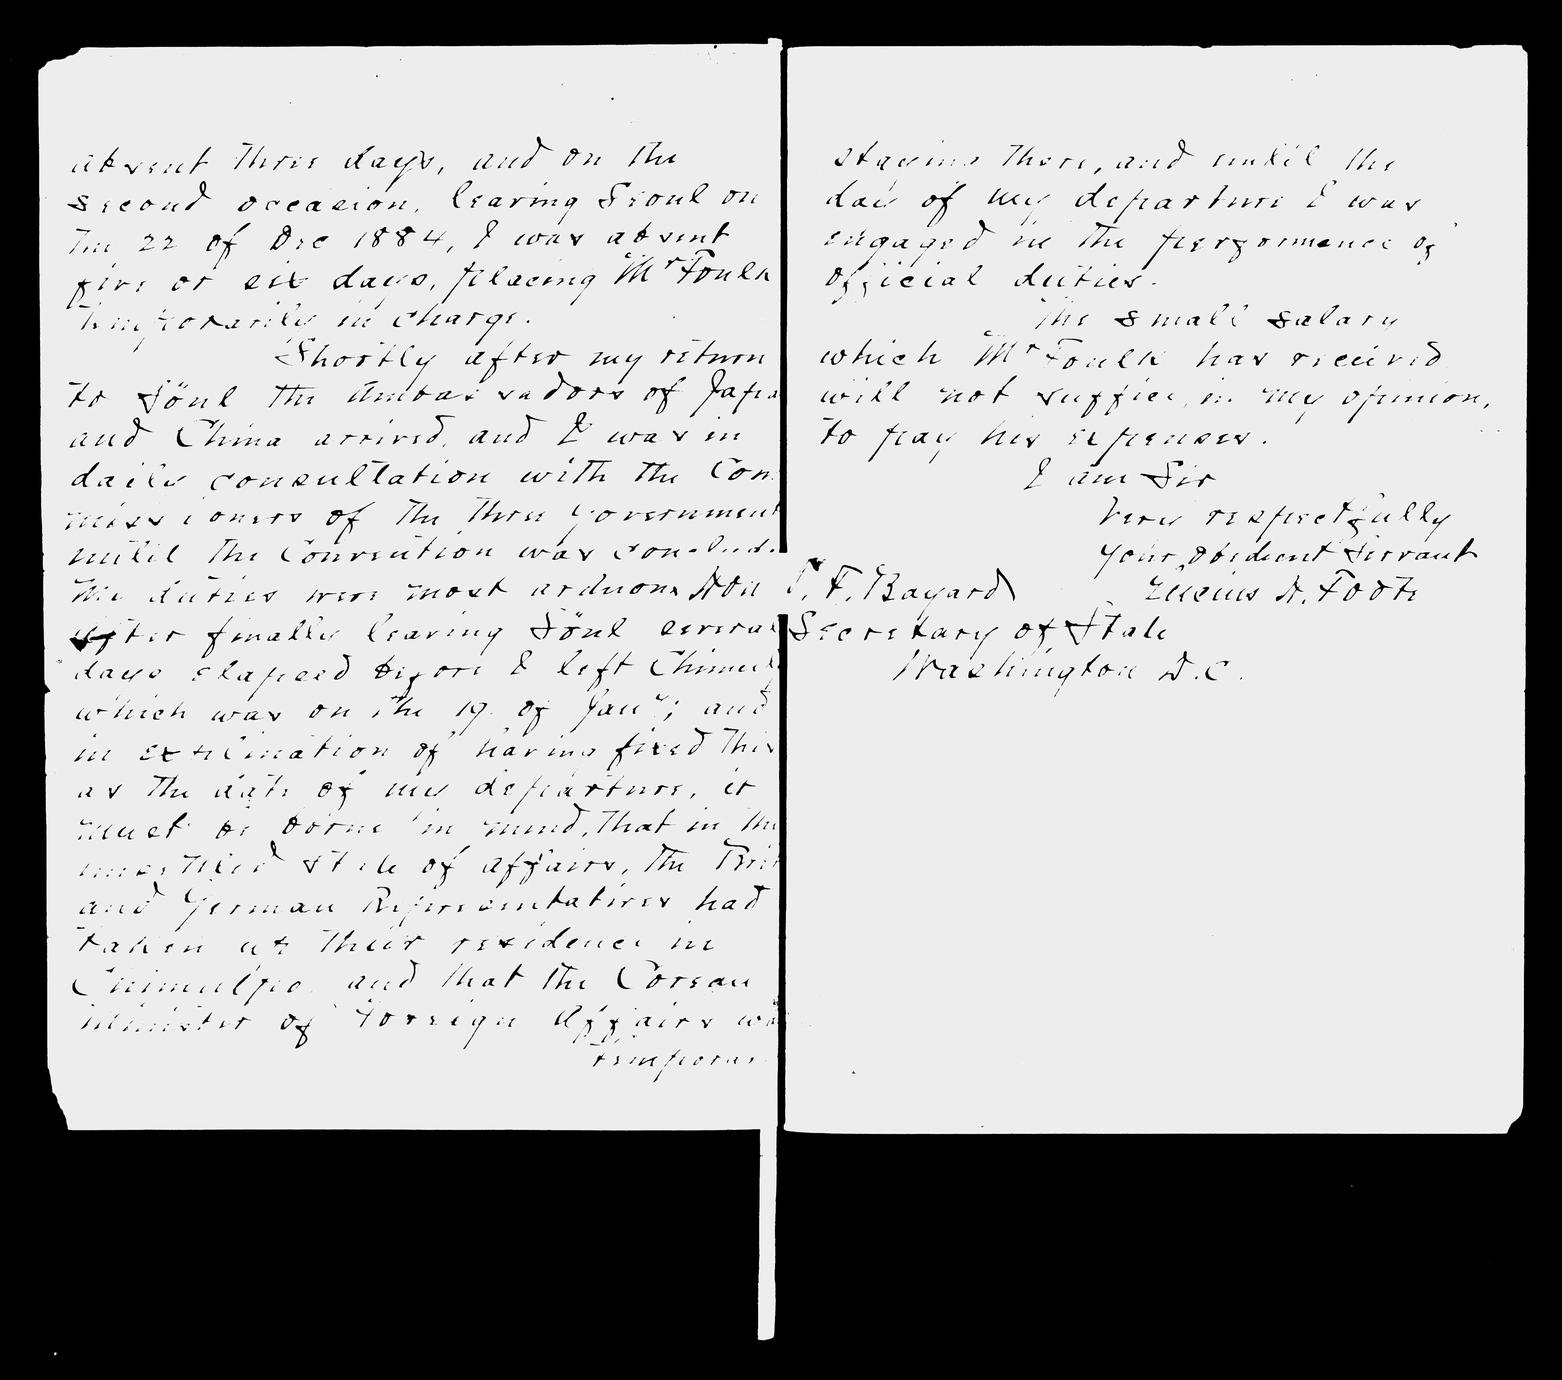 absent three days, and on the
second occasion, leaving Seoul on
the 22 of Dec 1884, I was absent
five or six days, placing Mr Foulk
temporarily in charge.
Shortly after my return
to Söul the Ambassadors of Japa
and China arrived, and I was in
daily consultation with the Com
missioners of the three Government
until the Convention was conclud
The duties were most arduous
after finally leaving Söul several
days elapsed before I left Chimul
which was on the 19 of Jany; and
in explination of having fixed this
as the date of my departure, it
must be borne in mind, that in the
unsettled state of affairs, the Brit
and German Representatives had
taken up their residence in
Chimulpo and that the Corean
Minister of Foreign Affairs wa
temporar
staying there, and until the
day of my departure I was
engaged in the performance of
official duties.
The small salary
which Mr Foulk has received
will not suffice, in my opinion,
to pay his expenses.
I am Sir
Very respectfully
your obedient Servant
Lucius H. Foote
Hon T. F. Bayard
Secretary of State
Washington D.C.